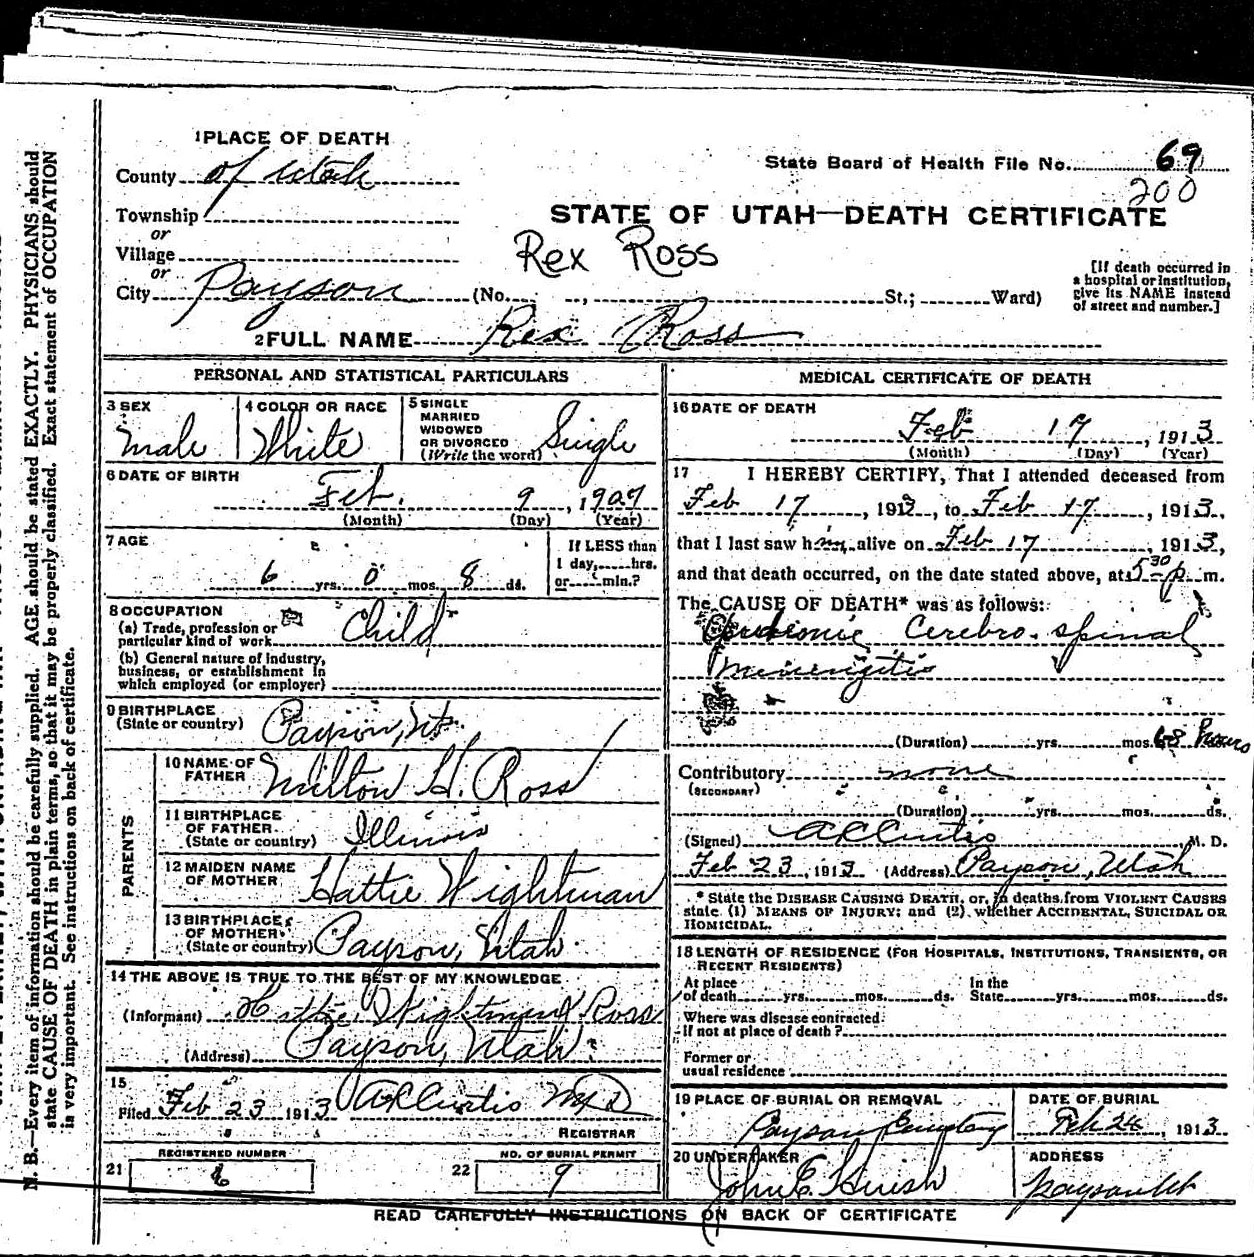 1 PLACE OF DEATH
County of Utah
Township
or
Village
or
City Payson (No. , St.; Ward)
State Board of Health File No. 69
200
STATE OF UTAH—DEATH CERTIFICATE
Rex Ross
[If death occurred in
a hospital or institution,
give its NAME instead
of street and number.]
2 FULL NAME Rex Ross
PERSONAL AND STATISTICAL PARTICULARS
3 SEX
Male
4 COLOR OR RACE
White
5 SINGLE
MARRIED
WIDOWED
OR DIVORCED
(Write the word) Single
6 DATE OF BIRTH
Feb. 9, 1907
(Month) (Day) (Year)
7 AGE
6 yrs. 0 mos. 8 ds.
If LESS than
1 day, hrs.
or min.?
8 OCCUPATION
(a) Trade, profession or
particular kind of work Child
(b) General nature of industry,
business, or establishment in
which employed (or employer)
9 BIRTHPLACE
(State or country) Payson, Ut.
PARENTS
10 NAME OF
FATHER Milton H. Ross
11 BIRTHPLACE
OF FATHER
(State or country) Illinois
12 MAIDEN NAME
OF MOTHER Hattie Wightman
13 BIRTHPLACE
OF MOTHER
(State or country) Payson, Utah
14 THE ABOVE IS TRUE TO THE BEST OF MY KNOWLEDGE
(Informant) Hattie Wightman Ross
(Address) Payson, Utah
15
Filed Feb 23 1913 A C Curtis M D
REGISTRAR
REGISTERED NUMBER
21
NO. OF BURIAL PERMIT
22 9
MEDICAL CERTIFICATE OF DEATH
16 DATE OF DEATH
Feb 17, 1913
(Month) (Day) (Year)
17 I HEREBY CERTIFY, That I attended deceased from
Feb 17, 1913, to Feb 17, 1913,
that I last saw him alive on Feb 17, 1913,
and that death occurred, on the date stated above, at 5 30 p m.
The CAUSE OF DEATH* was as follows:
Cerebro-spinal
Meningitis
(Duration) yrs. mos. 68 hours
Contributory none
(SECONDARY)
(Duration) yrs. mos. ds.
(Signed) A C Curtis M. D.
Feb 23, 1913 (Address) Payson, Utah
* State the DISEASE CAUSING DEATH, or, in deaths from VIOLENT CAUSES
state (1) MEANS OF INJURY; and (2) whether ACCIDENTAL, SUICIDAL OR
HOMICIDAL.
18 LENGTH OF RESIDENCE (FOR HOSPITALS, INSTITUTIONS, TRANSIENTS, OR
RECENT RESIDENTS)
At place
of death yrs. mos. ds.
In the
State yrs. mos. ds.
Where was disease contracted
if not at place of death?
Former or
usual residence
19 PLACE OF BURIAL OR REMOVAL
Payson Cemetery
DATE OF BURIAL
Feb 24, 1913
20 UNDERTAKER
John E. Huish
ADDRESS
Payson Ut
READ CAREFULLY INSTRUCTIONS ON BACK OF CERTIFICATE
N. B.—Every item of information should be carefully supplied. AGE should be stated EXACTLY. PHYSICIANS should
state CAUSE OF DEATH in plain terms, so that it may be properly classified. Exact statement of OCCUPATION
is very important. See instructions on back of certificate.